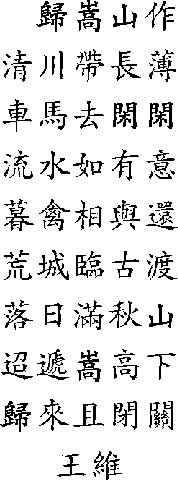 歸嵩山作
清川帶長薄
車馬去閑閑
流水如有意
暮禽相與還
荒城臨古渡
落日滿秋山
迢遞嵩高下
歸來且閉關
王維